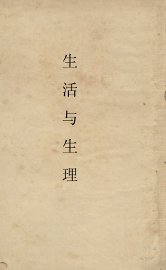 生活与生理